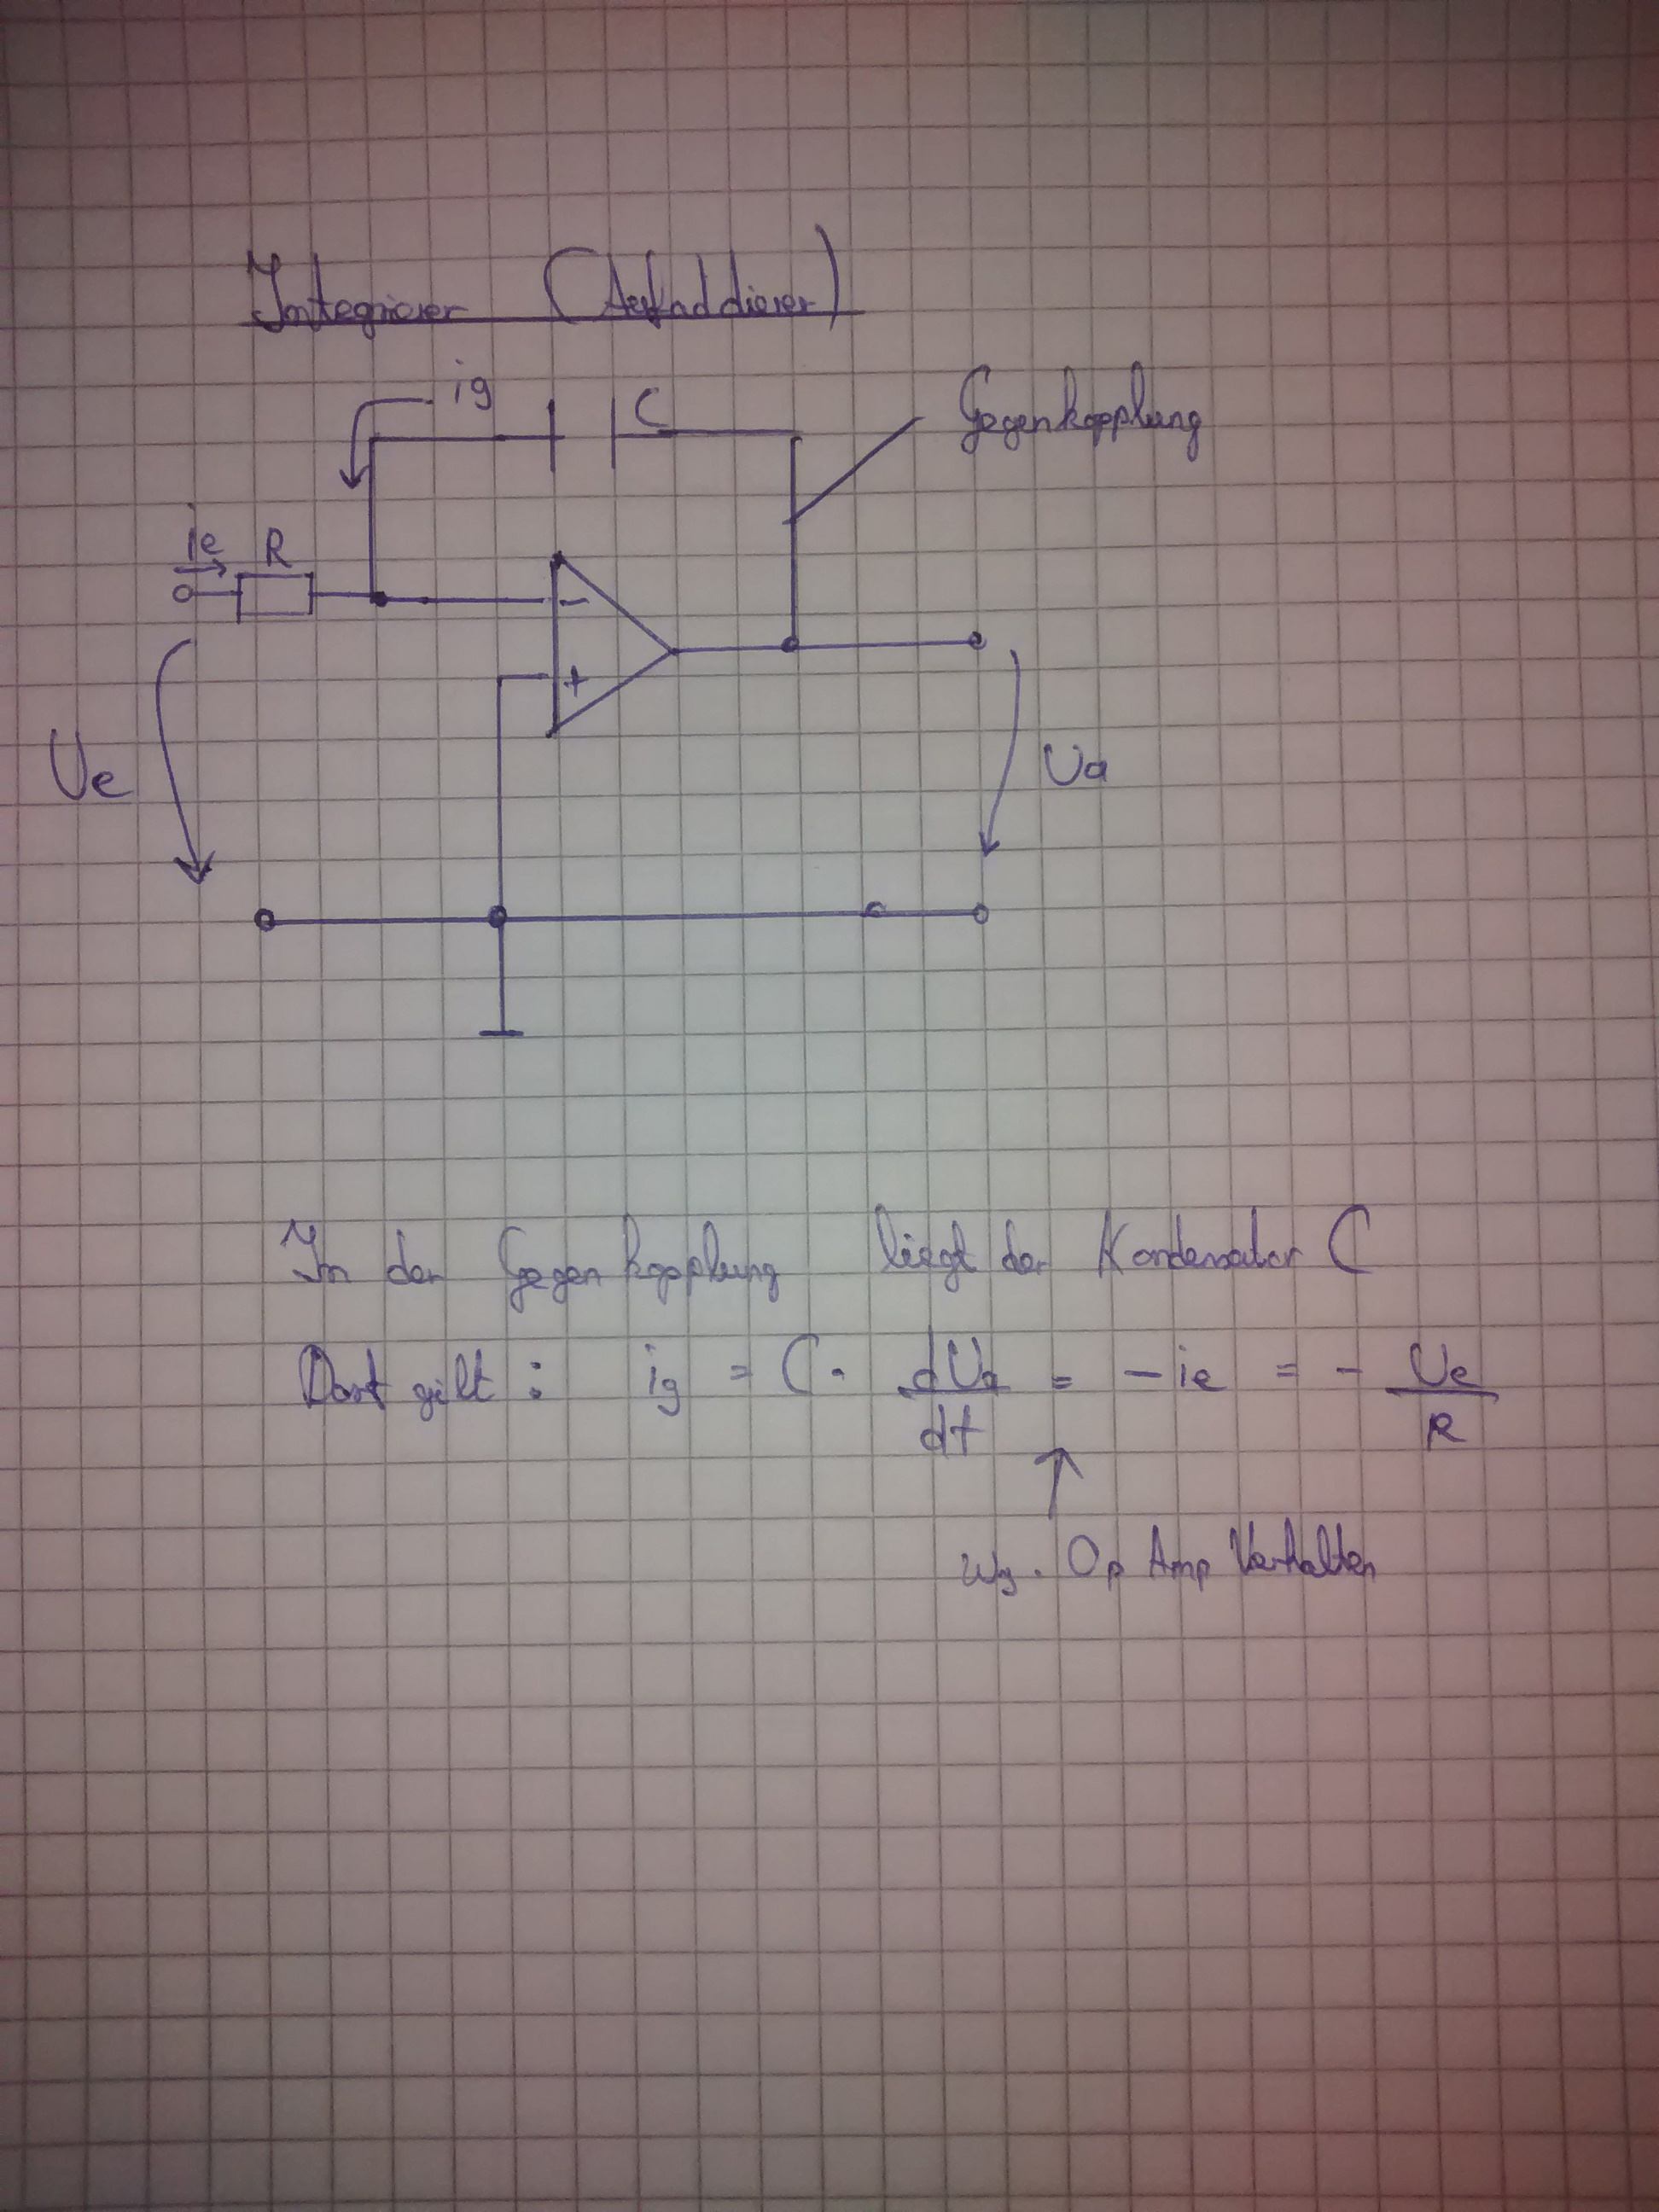 Integrierer (Aufaddierer)
ig
C
Gegenkopplung
ie
R
-
+
Ue
Ua
In der Gegenkopplung liegt der Kondensator C
Dort gilt : ig = C · dUa/dt = -ie = - Ue/R
wg. Op Amp Verhalten